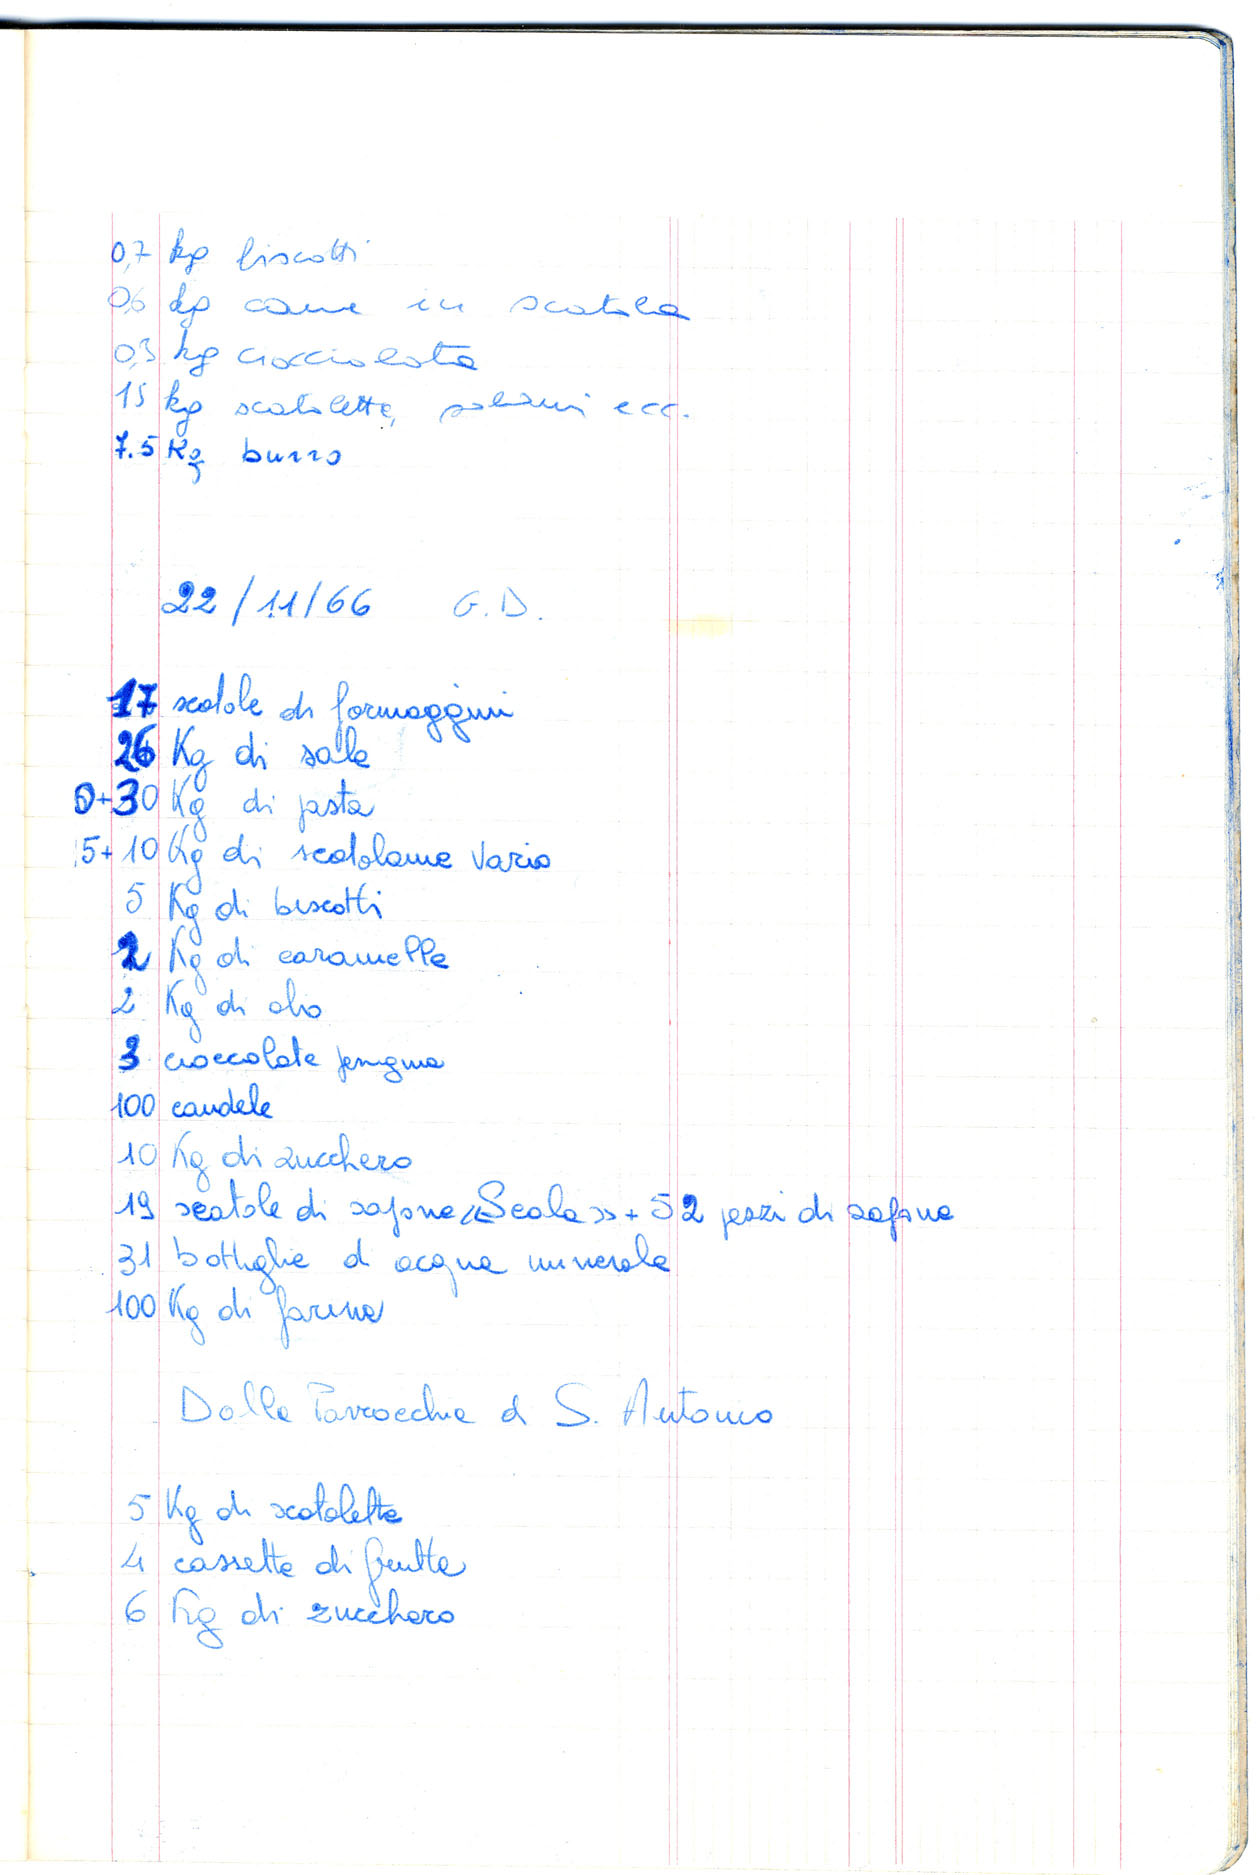 0,7 kg biscotti
0,6 kg carne in scatola
0,3 kg cioccolata
15 kg scatolette, salami ecc.
7.5 Kg burro
22/11/66 G.D.
17 scatole di formaggini
26 Kg di sale
0+30 Kg di pasta
5+10 Kg di scatolame vario
5 Kg di biscotti
2 Kg di caramelle
2 Kg di olio
3 cioccolate
100 candele
10 Kg di zucchero
19 scatole di sapone «Scala» + 52 pezzi di sapone
31 bottiglie di acqua minerale
100 Kg di farina
Dalla Parrocchia di S. Antonio
5 Kg di scatolette
4 cassette di frutta
6 Kg di zucchero